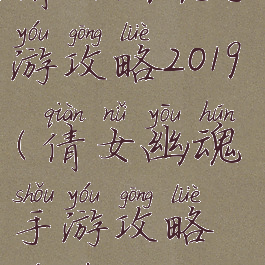 yóu gōng lüè
游攻略2019
qiàn nǚ yōu hún
(倩女幽魂
shǒu yóu gōng lüè
手游攻略